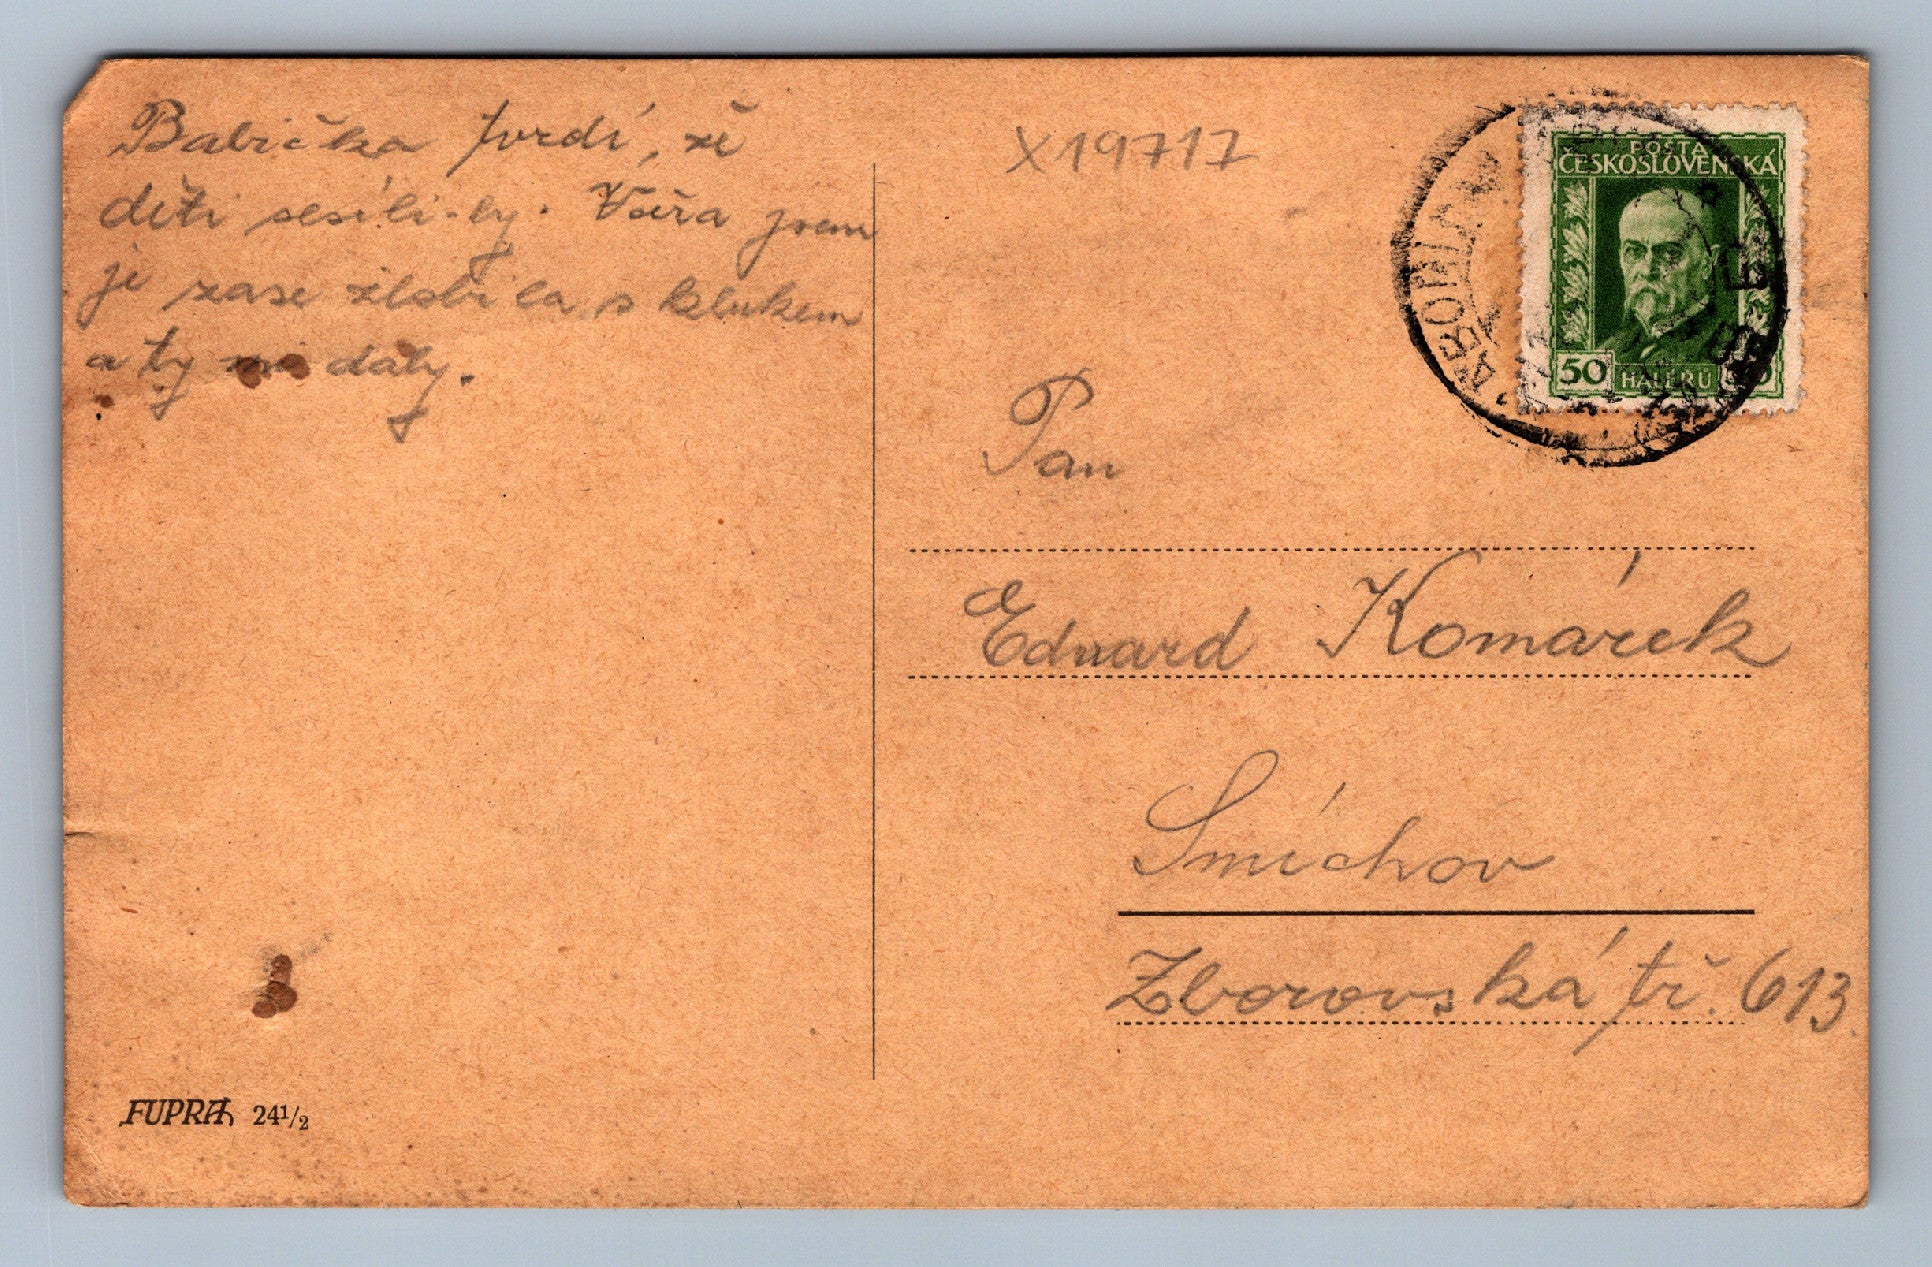 Babička tvrdí, že
děti sesílí-ly. Včera jsem
je zase zlobila s klukem
a ty mi daly.
X19717
POŠTA
ČESKOSLOVENSKÁ
50 HALÉŘŮ
Pan
Eduard Komárek
Smíchov
Zborovská tř. 613.
FUPRA 24 1/2